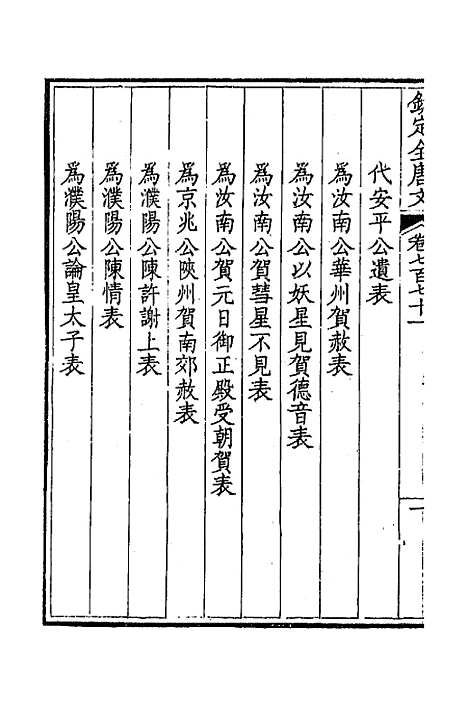 欽定全唐文
卷七百七十一
代安平公遺表
爲汝南公華州賀赦表
爲汝南公以妖星見賀德音表
爲汝南公賀彗星不見表
爲汝南公賀元日御正殿受朝賀表
爲京兆公陝州賀南郊赦表
爲濮陽公陳許謝上表
爲濮陽公陳情表
爲濮陽公論皇太子表